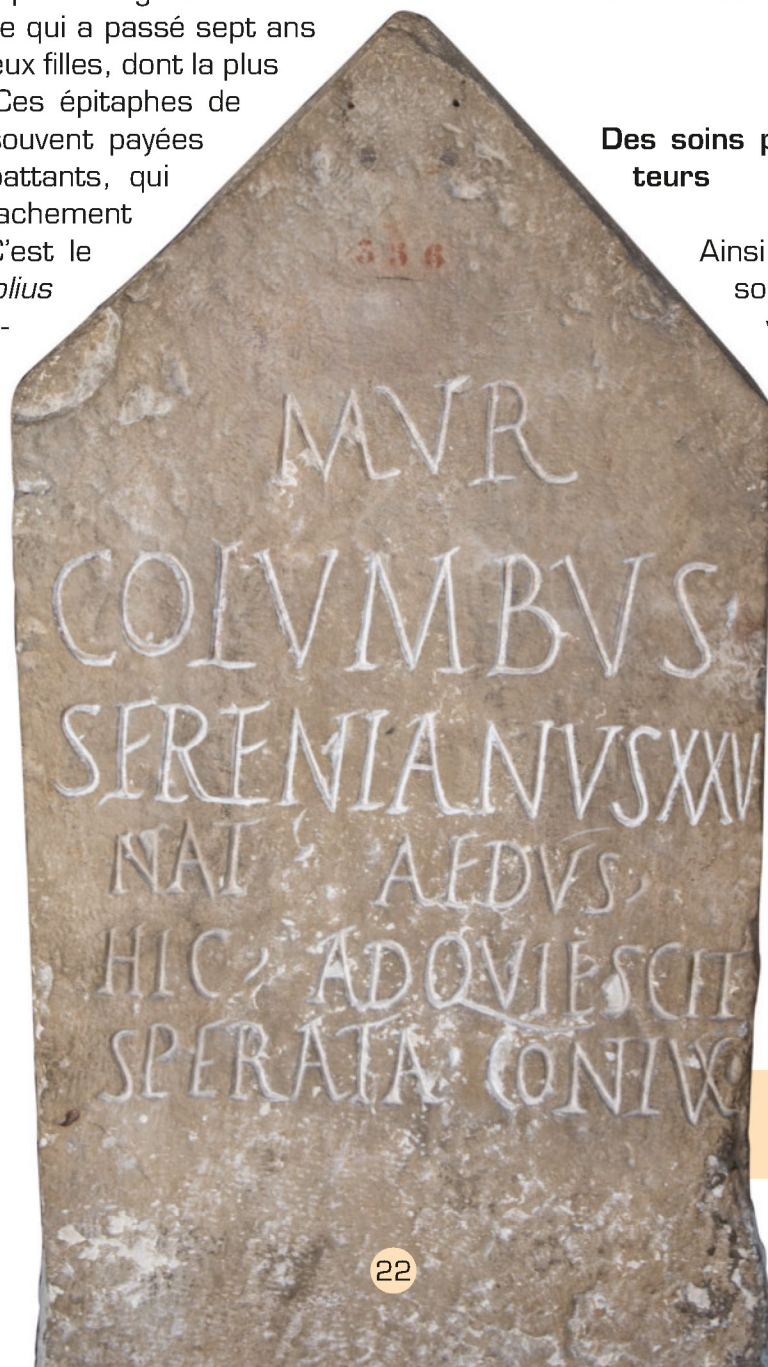 e qui a passé sept ans
eux filles, dont la plus
Ces épitaphes de
souvent payées
battants, qui
achement
C'est le
olius
-
Des soins p
teurs
Ainsi
so
336
MVR
COLVMBVS
SERENIANVS XXV
NAT AEDVS
HIC ADQVIESCIT
SPERATA CONIVX
22